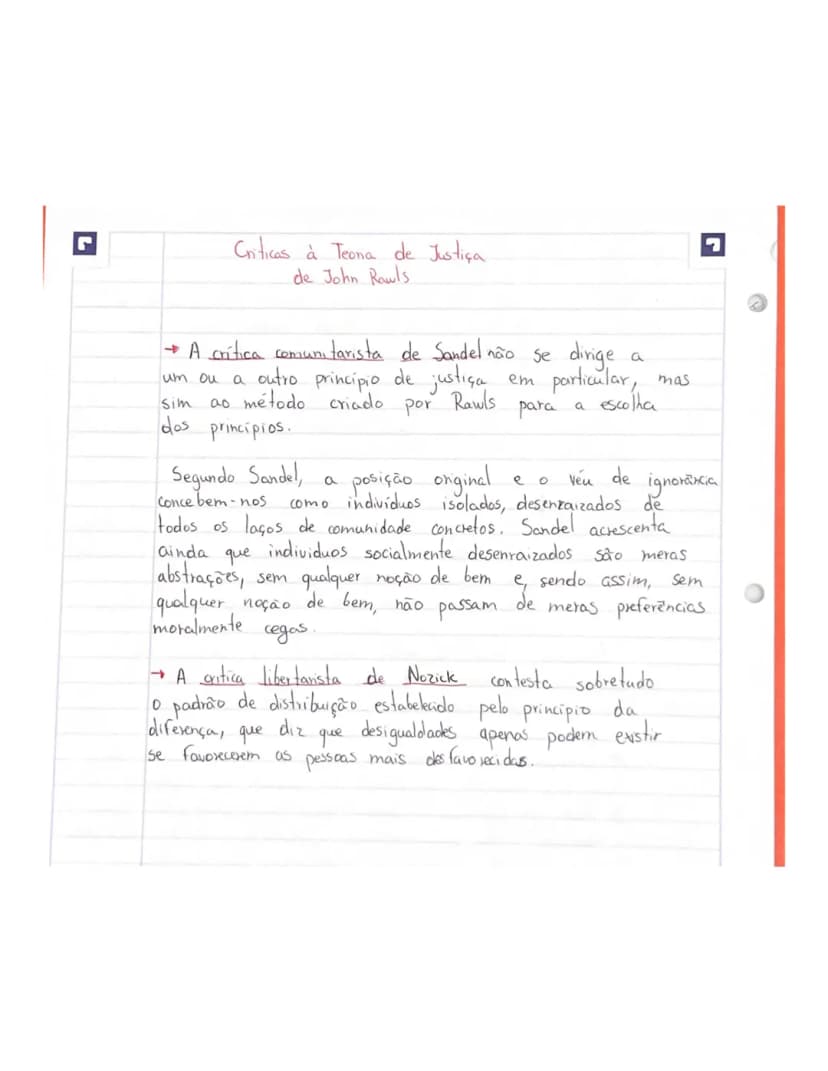 Críticas à Teoria de Justiça
de John Rawls
→ A crítica comunitarista de Sandel não se dirige a
um ou a outro princípio de justiça em particular, mas
sim ao método criado por Rawls para a escolha
dos princípios.
Segundo Sandel, a posição original e o véu de ignorância
concebem-nos como indivíduos isolados, desenraizados de
todos os laços de comunidade concretos. Sandel acrescenta
ainda que individuos socialmente desenraizados são meras
abstrações, sem qualquer noção de bem e, sendo assim, sem
qualquer noção de bem, não passam de meras preferências
moralmente cegas.
→ A critica libertarista de Nozick contesta sobretudo
o padrão de distribuição estabelecido pelo principio da
diferença, que diz que desigualdades apenas podem existir
se favorecerem as pessoas mais desfavorecidas.